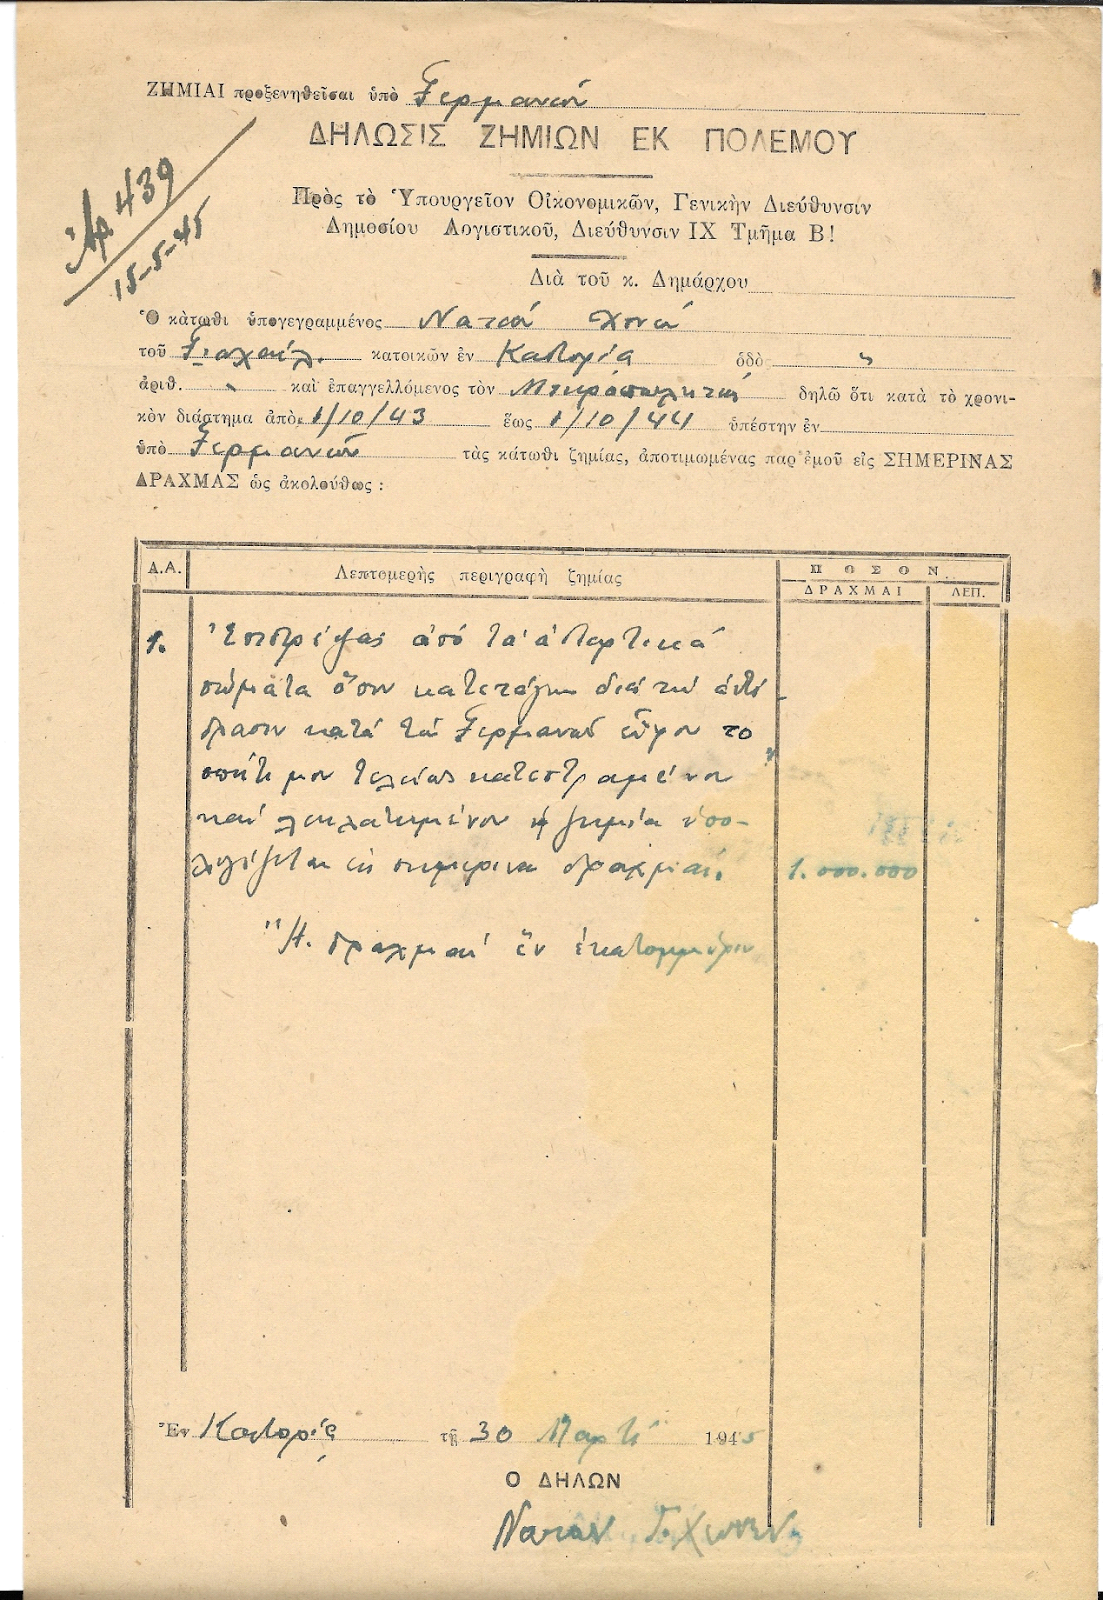 ΖΗΜΙΑΙ προξενηθεῖσαι ὑπὸ Γερμανῶν
ΔΗΛΩΣΙΣ ΖΗΜΙΩΝ ΕΚ ΠΟΛΕΜΟΥ
Ἀρ 439
15-5-45
Πρὸς τὸ Ὑπουργεῖον Οἰκονομικῶν, Γενικὴν Διεύθυνσιν
Δημοσίου Λογιστικοῦ, Διεύθυνσιν ΙΧ Τμῆμα Β!
Διὰ τοῦ κ. Δημάρχου
Ὁ κάτωθι ὑπογεγραμμένος Νατάν
τοῦ κατοικῶν ἐν Καστορίᾳ ὁδὸς "
ἀριθ. " καὶ ἐπαγγελλόμενος τὸν Μικροπωλητήν δηλῶ ὅτι κατὰ τὸ χρονι-
κὸν διάστημα ἀπὸ 1/10/43 ἕως 1/10/44 ὑπέστην ἐν
ὑπὸ Γερμανῶν τὰς κάτωθι ζημίας, ἀποτιμωμένας παρ' ἐμοῦ εἰς ΣΗΜΕΡΙΝΑΣ
ΔΡΑΧΜΑΣ ὡς ἀκολούθως :
Α.Α. Λεπτομερὴς περιγραφὴ ζημίας ΠΟΣΟΝ
ΔΡΑΧΜΑΙ ΛΕΠ.
1. Ἐπιστρέψας ἀπό τά ἀνταρτικά
σώματα ὅπου κατετάγην διά τήν ἀντί-
δρασιν κατά τῶν Γερμανῶν εὗρον το
σπίτι μου τελείως κατεστραμένον
καί λεηλατημένον ἡ ζημία ὑπο-
λογίζεται εἰς σημερινα δραχμαί. 1.000.000
Ἡ. δραχμαί ἕν ἑκατομμύριον
Ἐν Καστορίᾳ τῇ 30 Μαρτί 1945
Ο ΔΗΛΩΝ
Νατάν Γ.